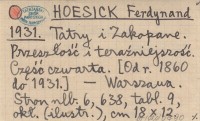 HOESICK Ferdynand
1931. Tatry i Zakopane.
Przeszłość i teraźniejszość.
Część czwarta. [Od r. 1860
do 1931.] — Warszawa.
Stron nlb. 6, 638, tabl. 9,
okł. (ilustr.), cm 18 x 12.